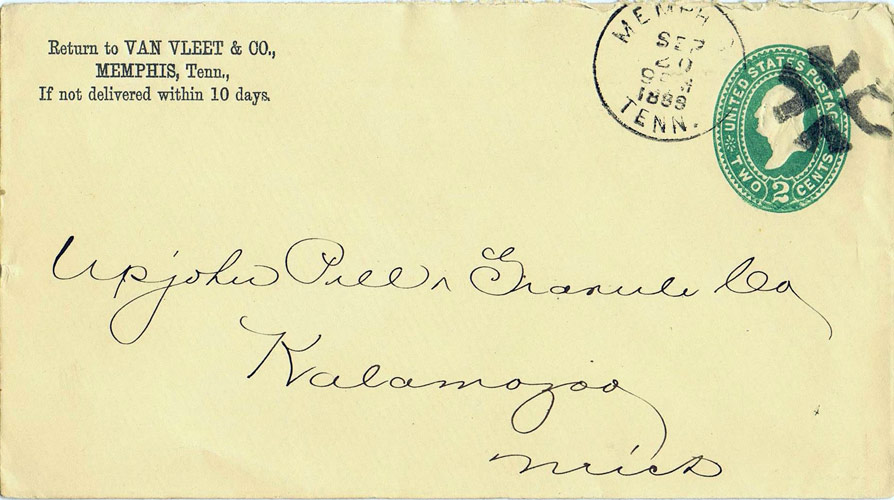 Return to VAN VLEET & CO.,
MEMPHIS, Tenn.,
If not delivered within 10 days.
MEMPH
SEP
20
1888
TENN.
UNITED STATES POSTAGE
TWO 2 CENTS
Upjohn Pill & Granule Co
Kalamazoo
Mich